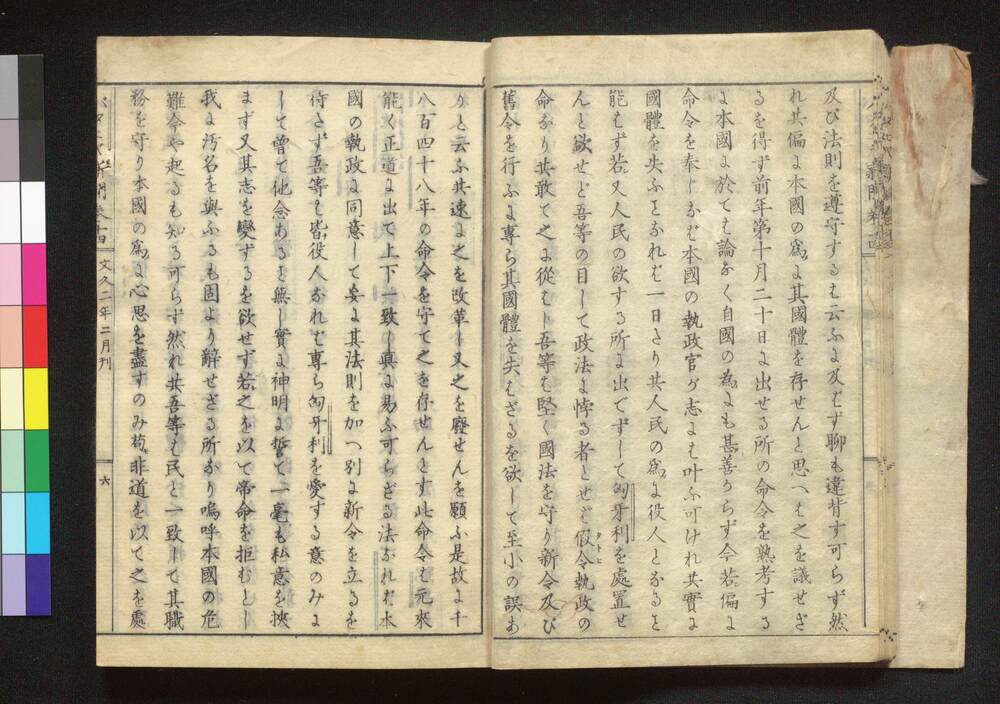 及び法則を遵守するは云ふに及はず聊も違背す可らず然
れ共偏に本國の為に其國體を存せんと思へは之を議せざ
るを得ず前年第十月二十日に出せる所の命令を熟考する
に本國に於ても論なく自國の為にも甚善からず今若偏に
命令を奉しなば本國の執政官が志には叶ふ可けれ共實に
國體を失ふことなれば一日たり共人民の為に役人となること
能はず若又人民の欲する所に出でずして匈牙利を處置せ
んと欲せど吾等の目して政法に悖る者とせば假令執政の
タトヒ
命なり共敢て之に從はし吾等は堅く國法を守り新令及び
舊令を行ふに専ら其國體を失はざるを欲して至小の誤あ
りと云ふ共速に之を改革し又之を廢せんを願ふ是故に千
八百四十八年の命令を守て之を存せんとす此命令は元來
能く正道に出て上下一致し眞に易ふ可らざる法なれば本
國の執政に同意して妄に其法則を加へ別に新令を立るを
待たず吾等も皆役人なれば専ら匈牙利を愛する意のみに
して曽て他念あること無し實に神明に誓て一毫も私意を挾
まず又其志を變ずるを欲せず若之を以て帝命を拒むとし
我に汚名を與ふるも固より辭せざる所なり嗚呼本國の危
難今や起るも知る可らず然れ共吾等は民と一致して其職
務を守り本國の為に心思を盡すのみ苟非道を以て之を處
新聞巻十四
文久二年二月刊
六